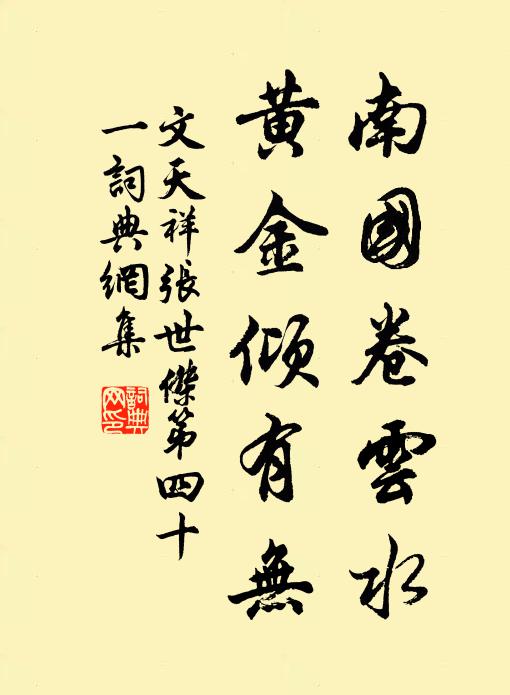 南國卷雲水
黃金傾有無
文天祥張世傑第四十
一詞典網集
詞典
网印